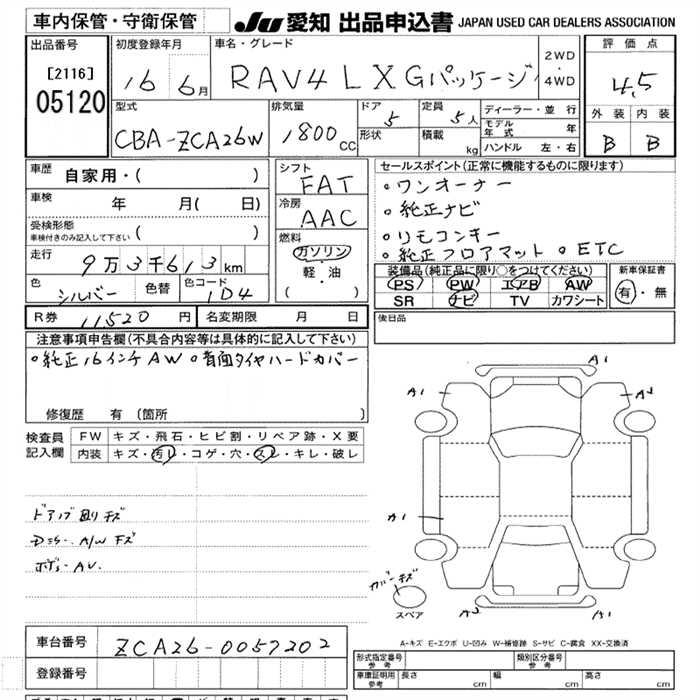 車内保管・守衛保管
JU 愛知 出品申込書 JAPAN USED CAR DEALERS ASSOCIATION
出品番号
[2116]
05120
初度登録年月
16 6月
車名・グレード
RAV4 L X Gパッケージ
2WD
4WD
評価点
4.5
外装 内装
B B
型式
CBA-ZCA26W
排気量
1800 CC
ドア
5
形状
定員
5人
積載
kg
ディーラー・並行
モデル年式 年
ハンドル 左・右
車歴 自家用・( )
車検 年 月( 日)
受検形態
車検付きのみ記入して下さい ( )
走行 9万3千613km
色 シルバー 色替 色コード 1D4
シフト
FAT
冷房
AAC
燃料
ガソリン
軽・油
( )
セールスポイント(正常に機能するものに限ります)
。ワンオーナー
。純正ナビ
。リモコンキー
。純正フロアマット 。ETC
装備品(純正品に限り○をつけてください)
PS PW エアB AW
SR ナビ TV カワシート
新車保証書
有・無
R券 11520円 名変期限 月 日
後日品
注意事項申告欄(不具合内容等は具体的に記入して下さい)
。純正16インチAW 。背面タイヤハードカバー
修復歴 有 (箇所 )
検査員記入欄
FW キズ・飛石・ヒビ割・リペア跡・X要
内装 キズ・汚レ・コゲ・穴・スレ・キレ・破レ
A1
A1
A1
カバーキズ
スペア
A-キズ E-エクボ U-凹み W-補修跡 S-サビ C-腐食 XX-交換済
車台番号 ZCA26-0057202
登録番号
形式指定番号 参考
類別区分番号 参考
車庫証明用 参考 長さ cm 幅 cm 高さ cm